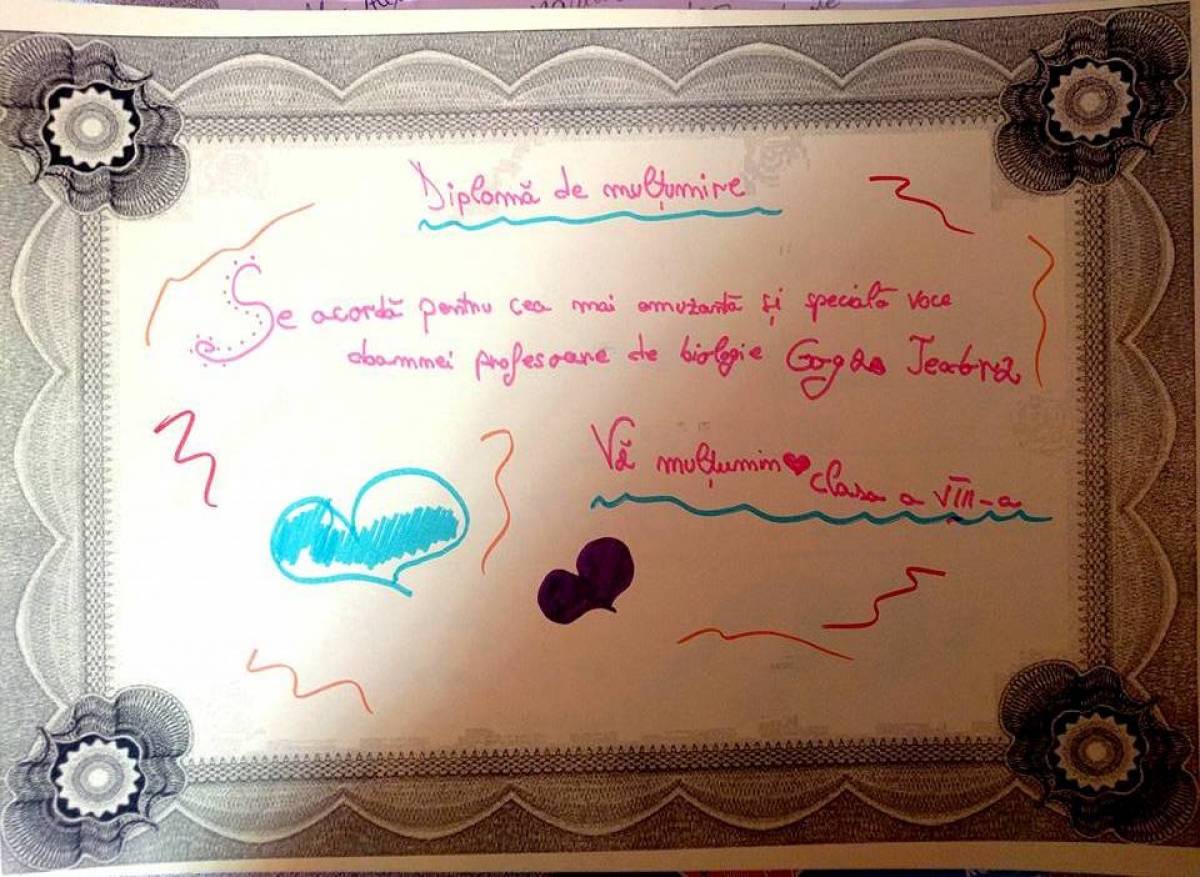 Diplomă de mulțumire
Se acordă pentru cea mai amuzantă și specială voce
doamnei profesoare de biologie
Vă mulțumim
clasa a VIII-a